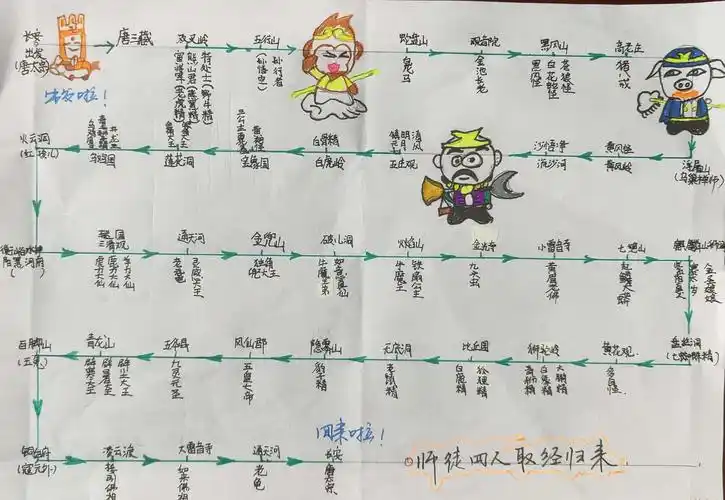 长安
出发
(唐太宗)
唐三藏
双叉岭
五行山
蛇盘山
观音院
黑风山
高老庄
寅将军(老虎精)
熊山君(熊罴精)
特处士(野牛精)
(孙悟空)
孙行者
龙马
金池长老
黑风怪
白花蛇怪
苍狼怪
猪八戒
出发啦！
火云洞
(红孩儿)
乌鸡国
莲花洞
金角大王
银角大王
宝象国
黄袍怪
白骨精
白虎岭
镇元子
明月
清风
五庄观
沙悟净
流沙河
黄风怪
黄风岭
浮屠山
(乌巢禅师)
三清观
虎力大仙
鹿力大仙
羊力大仙
通天河
老鼋
灵感大王
金兜山
独角兕大王
破儿洞
如意真仙
火焰山
牛魔王
铁扇公主
金光寺
九头虫
小雷音寺
黄眉老佛
七绝山
红鳞大蟒
赛太岁
金圣娘娘
盘丝洞
(七蜘蛛精)
黄花观
多目怪
狮驼岭
青狮精
白象精
大鹏精
比丘国
白鹿精
狐狸精
无底洞
老鼠精
隐雾山
豹子精
凤仙郡
玉皇大帝
玉华县
九灵元圣
青龙山
辟寒大王
辟暑大王
辟尘大王
(玉兔)
铜台府
(寇元外)
凌云渡
接引佛祖
大雷音寺
如来佛祖
通天河
老龟
长安
唐太宗
回来啦！
师徒四人取经归来